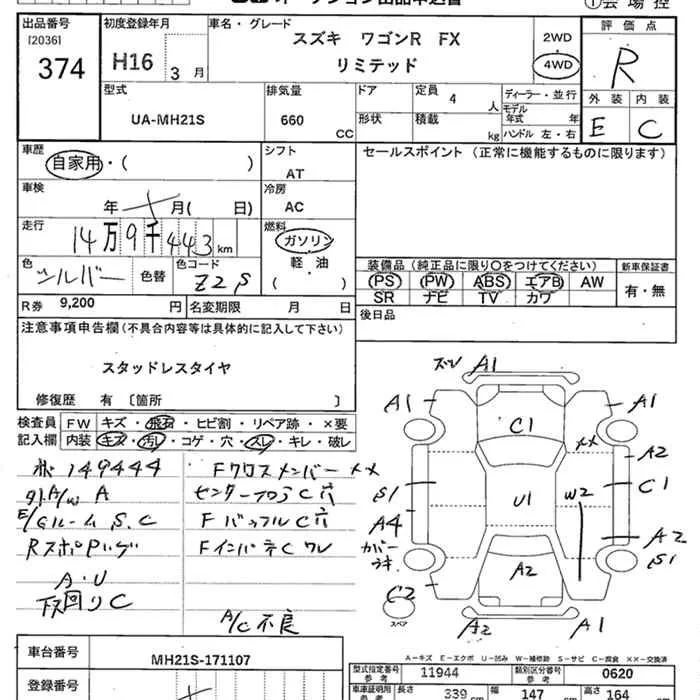 オークション出品申込書
①会場控
出品番号
[2036]
374
初度登録年月
H16 3月
車名・グレード
スズキ ワゴンR FX
リミテッド
2WD
4WD
評価点
R
外装 内装
E C
型式
UA-MH21S
排気量
660 CC
ドア
形状
定員 4 人
積載 kg
ディーラー・並行
モデル年式 年
ハンドル 左・右
車歴
自家用・( )
シフト
AT
セールスポイント (正常に機能するものに限ります)
車検
年 月( 日)
冷房
AC
走行
14万9千443km
燃料
ガソリン
軽・油
( )
色
シルバー
色替
色コード
Z2S
装備品 (純正品に限り○をつけてください)
PS PW ABS エアB AW
SR ナビ TV カワ
新車保証書
有・無
R券 9,200 円
名変期限 月 日
後日品
注意事項申告欄(不具合内容等は具体的に記入して下さい)
スタッドレスタイヤ
修復歴 有 〔箇所 〕
検査員記入欄
FW キズ・飛石・ヒビ割・リペア跡・×要
内装 キズ・汚レ・コゲ・穴・スレ・キレ・破レ
149444
外A/W A
E/Gルーム S.C
A・U
下回りC
Fクロスメンバー ××
センターフロアC穴
FバッフルC穴
FインパネC ワレ
A/C不良
A1
A1
A1
C1
××
A2
S1
U1
W2
C1
A4
カバーウキ
A2
S1
A2
C2
スペア
A2
A1
A-キズ E-エクボ U-凹み W-補修跡 S-サビ C-腐食 ××-交換済
車台番号
MH21S-171107
登録番号
型式指定番号 参考
11944
類別区分番号 参考
0620
車庫証明用 参考
長さ 339 cm
幅 147 cm
高さ 164 cm